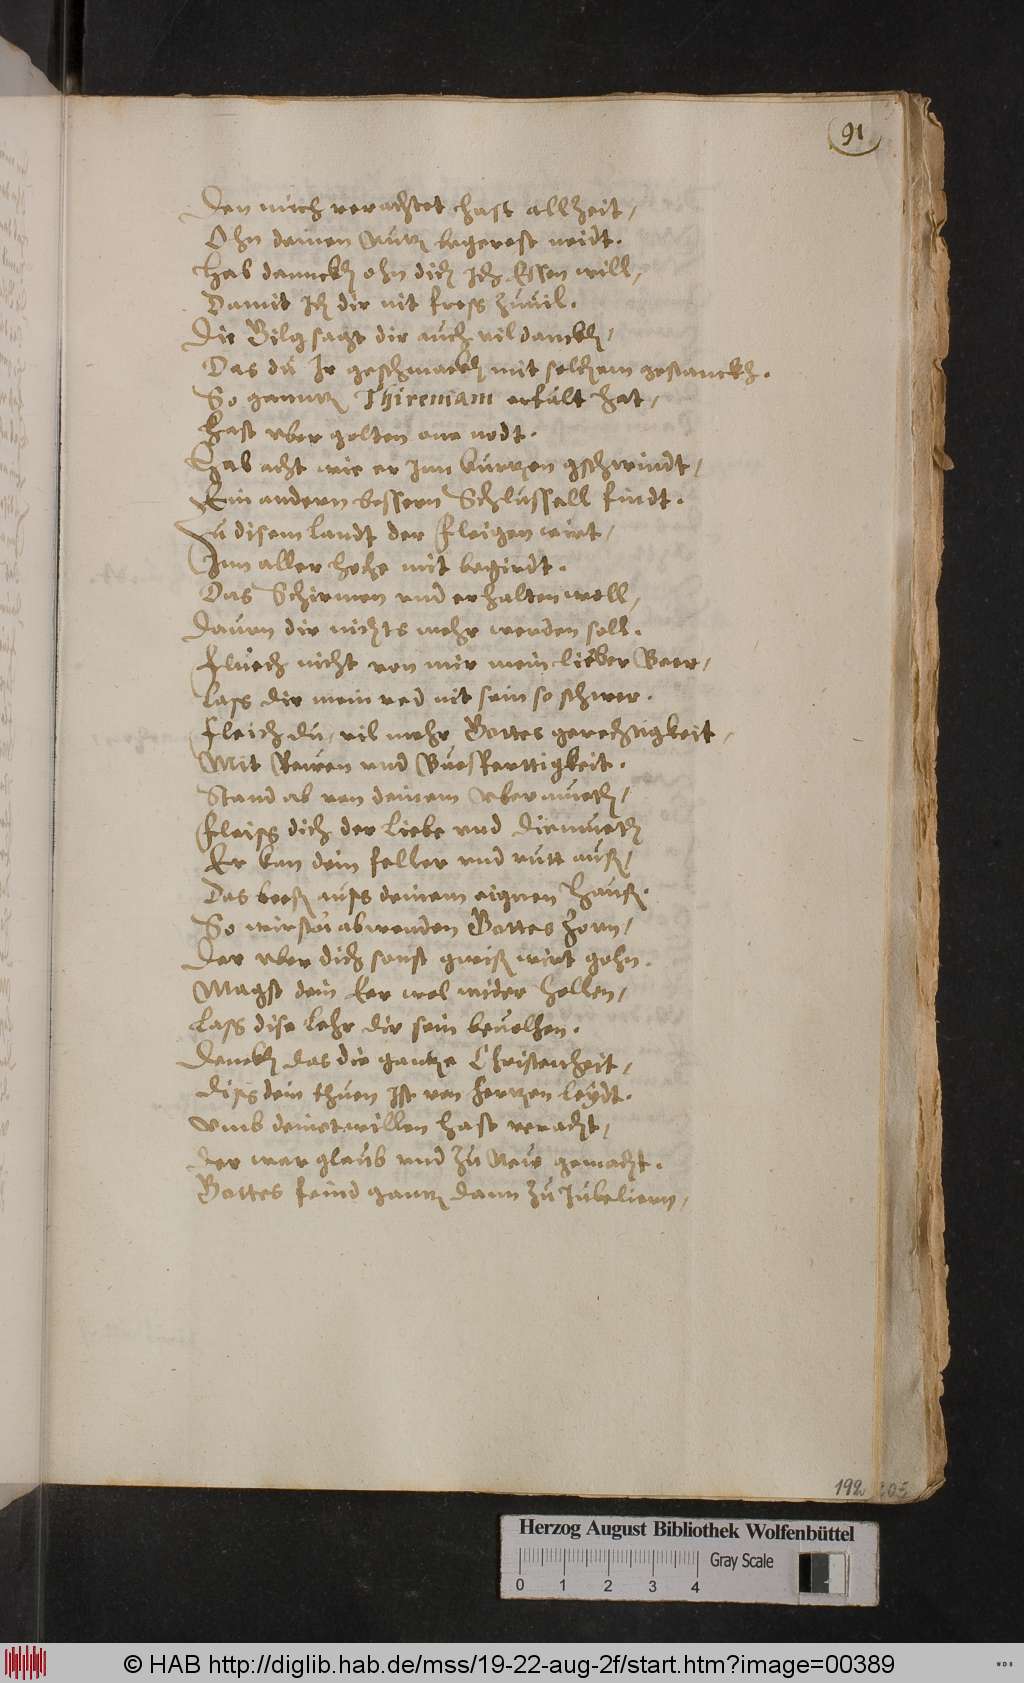 91
Den mich verachtet hast allzeit,
Ohn deinen Nutz begerest neidt.
Hab danckh ohn dich Ich Essen will,
Damit Ich dir nit fress zuuil.
Die Bilg sagt dir auch vil danckh,
Das du Ir geschmackh mit solchem gestanckh.
So ganntz Thireniam erfült hat,
Hast vber golten one nodt.
Hab acht wie er Inn kurtzen gschwindt,
Ein andern bessern Schlussell findt.
Zu disem landt der fleigen wirt,
Inn aller hoche mit begirdt.
Das Schirmen vnd erhalten woll,
Dauon dir nichts mehr werden soll.
Fluech nicht von mir mein lieber Beer,
Lass dir mein red nit sein so schwer.
Fleich du vil mehr Gottes gerechtigkeit,
Mit Rewen vnd Buesfertigkeit.
Stand ab von deinem vbermueth,
Fleiss dich der liebe vnd Diemueth
Er kan dein feller vnd rutt auss,
Das bess auss deinem eignen Hauss.
So wirstu abwenden Gottes Zorn,
Der vber dich sonst gwiss wirt gohn.
Magst dein Eer wol wider hollen,
Lass dise lehr dir sein beuolhen.
Denckh das die gantze Christenheit,
Diss dein thuen Ist von hertzen leydt.
Vmb deinetwillen hast veracht,
Der war glaub vnd zu New gemacht.
Gottes feind gantz dann zu Jubeliern,
192
Herzog August Bibliothek Wolfenbüttel
Gray Scale
0 1 2 3 4
© HAB http://diglib.hab.de/mss/19-22-aug-2f/start.htm?image=00389